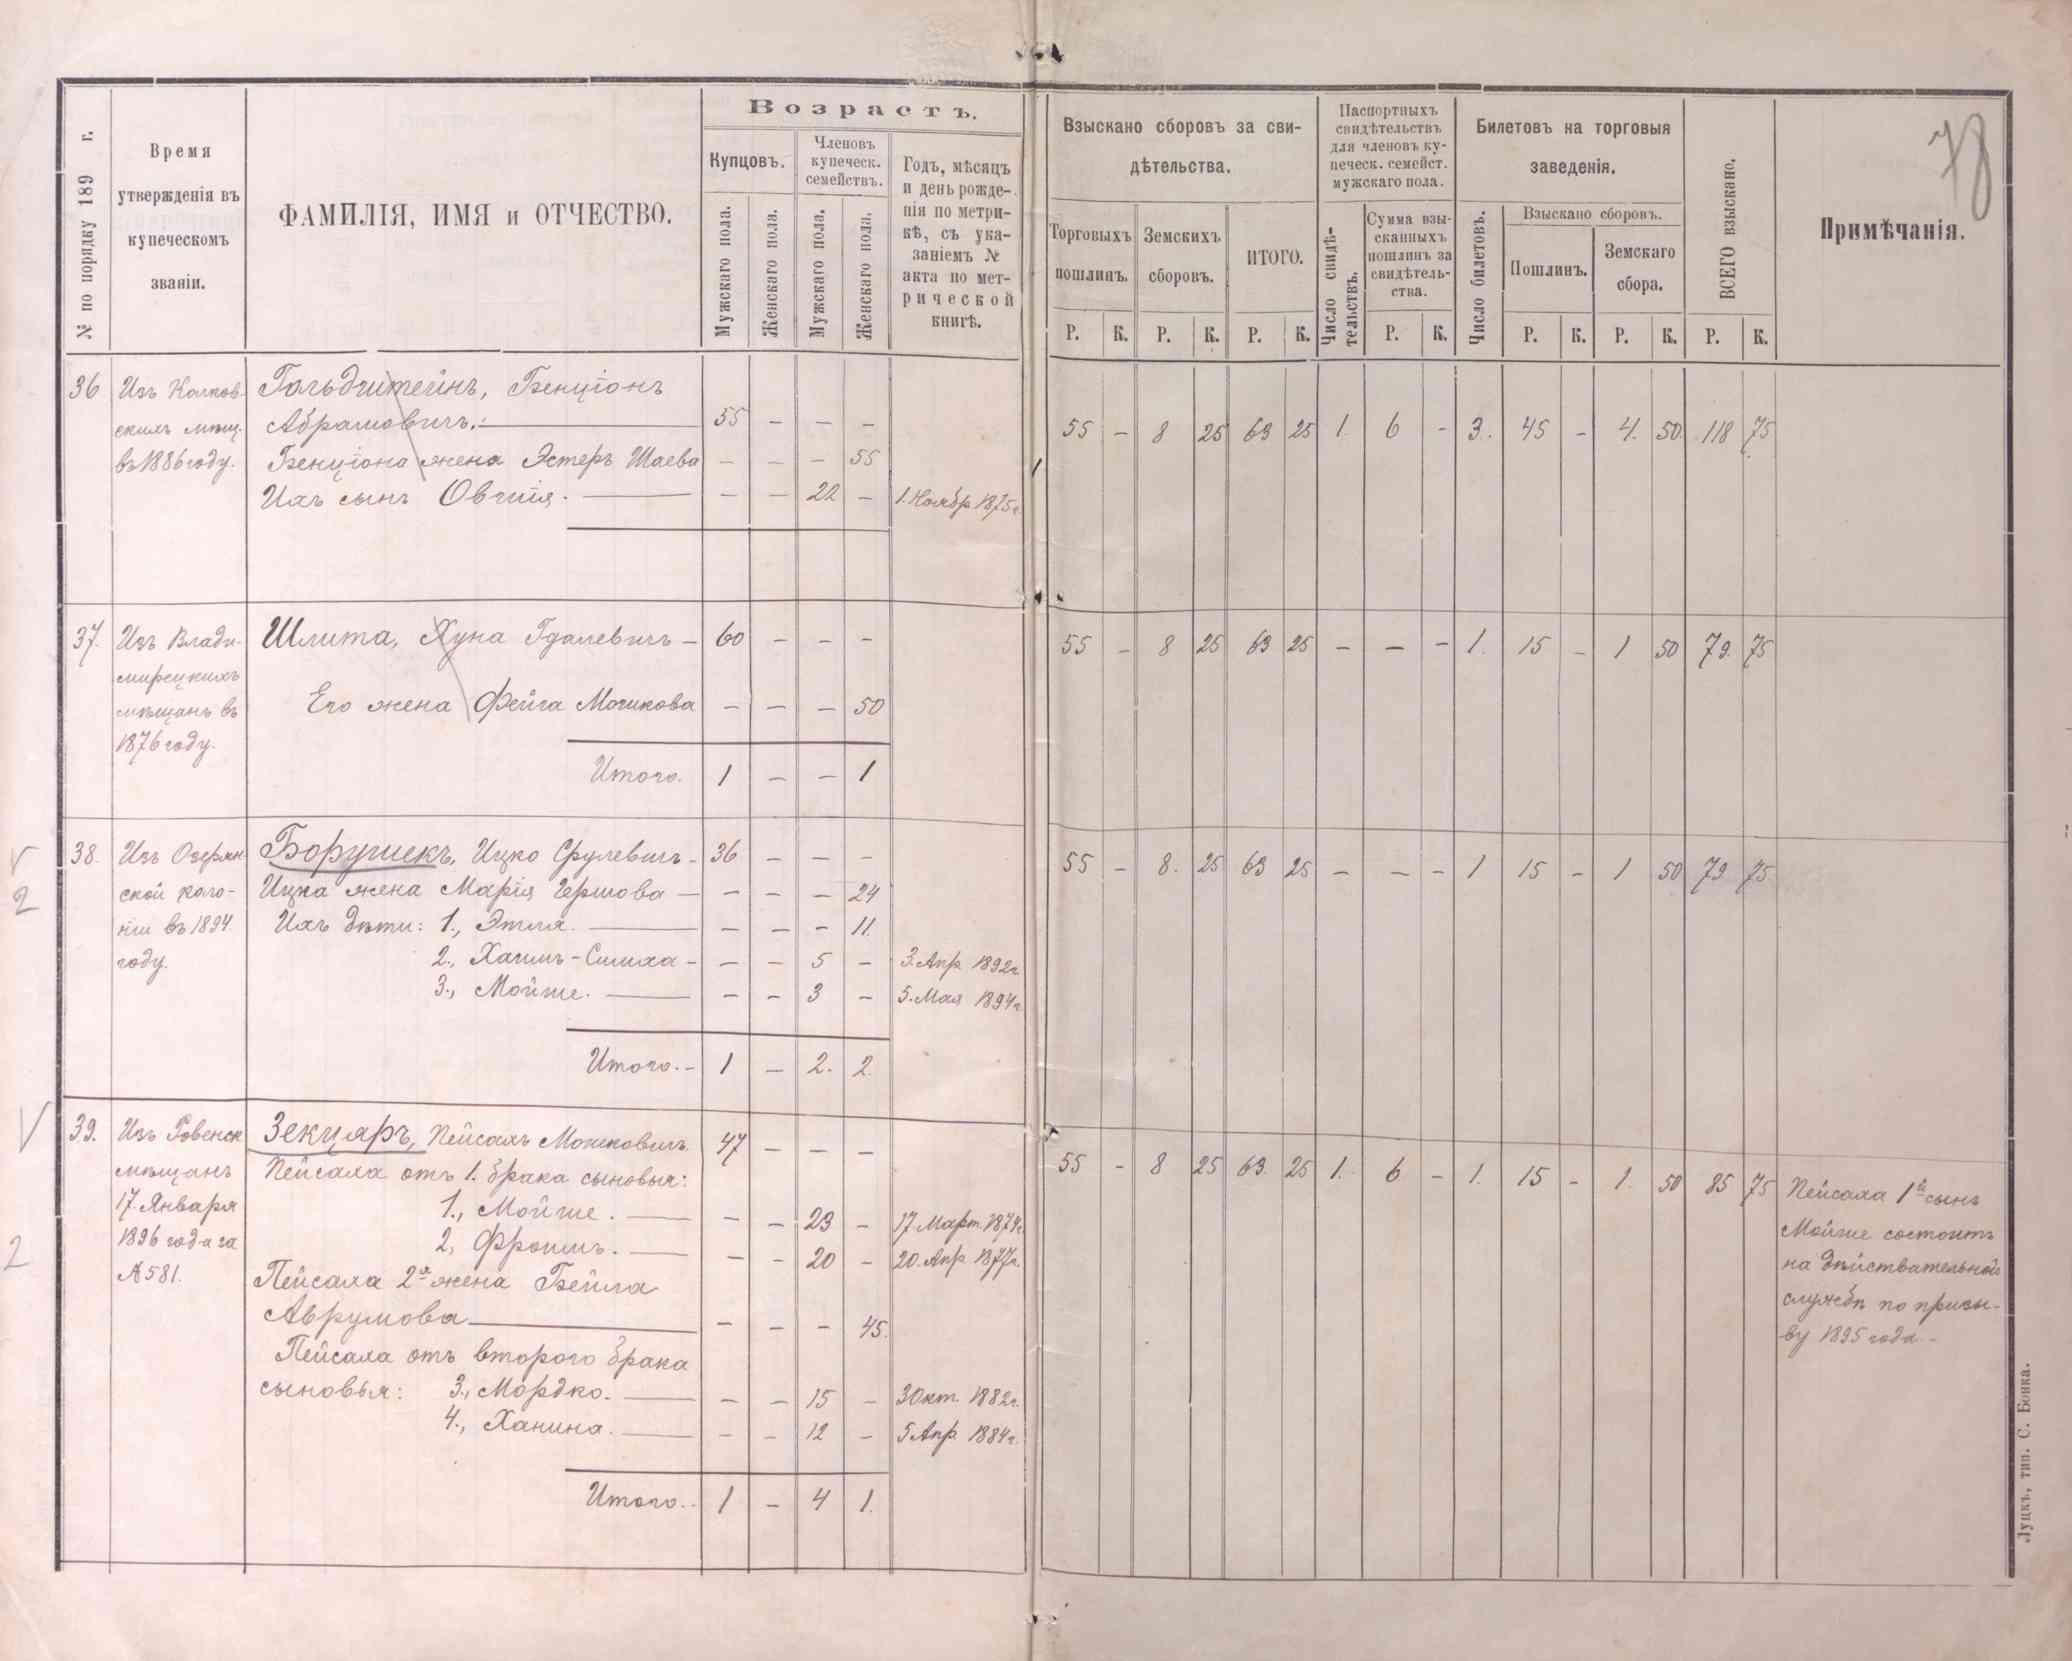 78
№ по порядку 189 г.
Время
утвержденія въ
купеческомъ
званіи.
ФАМИЛІЯ, ИМЯ и ОТЧЕСТВО.
Возрастъ.
Купцовъ.
Мужскаго пола.
Женскаго пола.
Членовъ
купеческ.
семействъ.
Мужскаго пола.
Женскаго пола.
Годъ, мѣсяцъ
и день рожде-
нія по метри-
кѣ, съ ука-
заніемъ №
акта по мет-
рической
книгѣ.
Взыскано сборовъ за сви-
дѣтельства.
Торговыхъ
пошлинъ.
Земскихъ
сборовъ.
ИТОГО.
Паспортныхъ
свидѣтельствъ
для членовъ ку-
печеск. семейст.
мужскаго пола.
Число свидѣ-
тельствъ.
Сумма взы-
сканныхъ
пошлинъ за
свидѣтель-
ства.
Билетовъ на торговыя
заведенія.
Число билетовъ.
Взыскано сборовъ.
Пошлинъ.
Земскаго
сбора.
ВСЕГО взыскано.
Примѣчанія.
Р. К. Р. К. Р. К. Р. К. Р. К. Р. К. Р. К.
36 Изъ Колков-
скихъ мѣщ.
въ 1886 году.
Гольдштейнъ, Бенціонъ
Абрамовичъ.: 55 – – –
Бенціона жена Эстеръ Шаева – – – 55
Ихъ сынъ Овшія. – – 22 – 1. Ноябр 1875 г.
55 – 8 25 63 25 1. 6 – 3. 45 – 4. 50. 118 75
37. Изъ Влади-
мирецкихъ
мѣщанъ въ
1876 году.
Шлита, Хуна Гдалевичъ – 60 – – –
Его жена Фейга Мошкова – – – 50
Итого. 1 – – 1
55 – 8 25 63 25 – – – 1. 15 – 1 50 79. 75
38. Изъ Озерян-
ской коло-
ніи въ 1894
году.
2
Борушекъ, Ицко Срулевичъ – 36 – – –
Ицка жена Марія Гершова – – – – 24
Ихъ дѣти: 1., Этля. – – – 11.
2., Хаимъ-Симха – – – 5 – 3. Апр. 1892 г.
3., Мойше. – – 3 – 5. Мая 1894 г.
Итого. – 1 – 2. 2.
55 – 8. 25 63 25 – – – 1 15 – 1 50 79 75
39. Изъ Ровенск
мѣщанъ
17 Января
1896 года за
№ 581.
2
Зекцаръ, Пейсахъ Мошковичъ. 47 – – –
Пейсаха отъ 1. брака сыновья:
1., Мойше. – – 23 – 17 Март. 1874 г.
2, Фроимъ. – – 20 – 20. Апр 1877 г.
Пейсаха 2ᵃ жена Бейла
Аврумова – – – 45.
Пейсаха отъ второго брака
сыновья: 3., Мордко. – – 15 – 3 Окт. 1882 г.
4., Ханина. – – 12 – 5 Апр. 1884 г.
Итого. – 1 – 4 1.
55 – 8 25 63. 25 1. 6 – 1. 15 – 1. 50 85 75
Пейсаха 1й сынъ
Мойше состоитъ
на дѣйствательной
службѣ по призы-
ву 1895 года. –
Луцкъ, тип. С. Бонка.